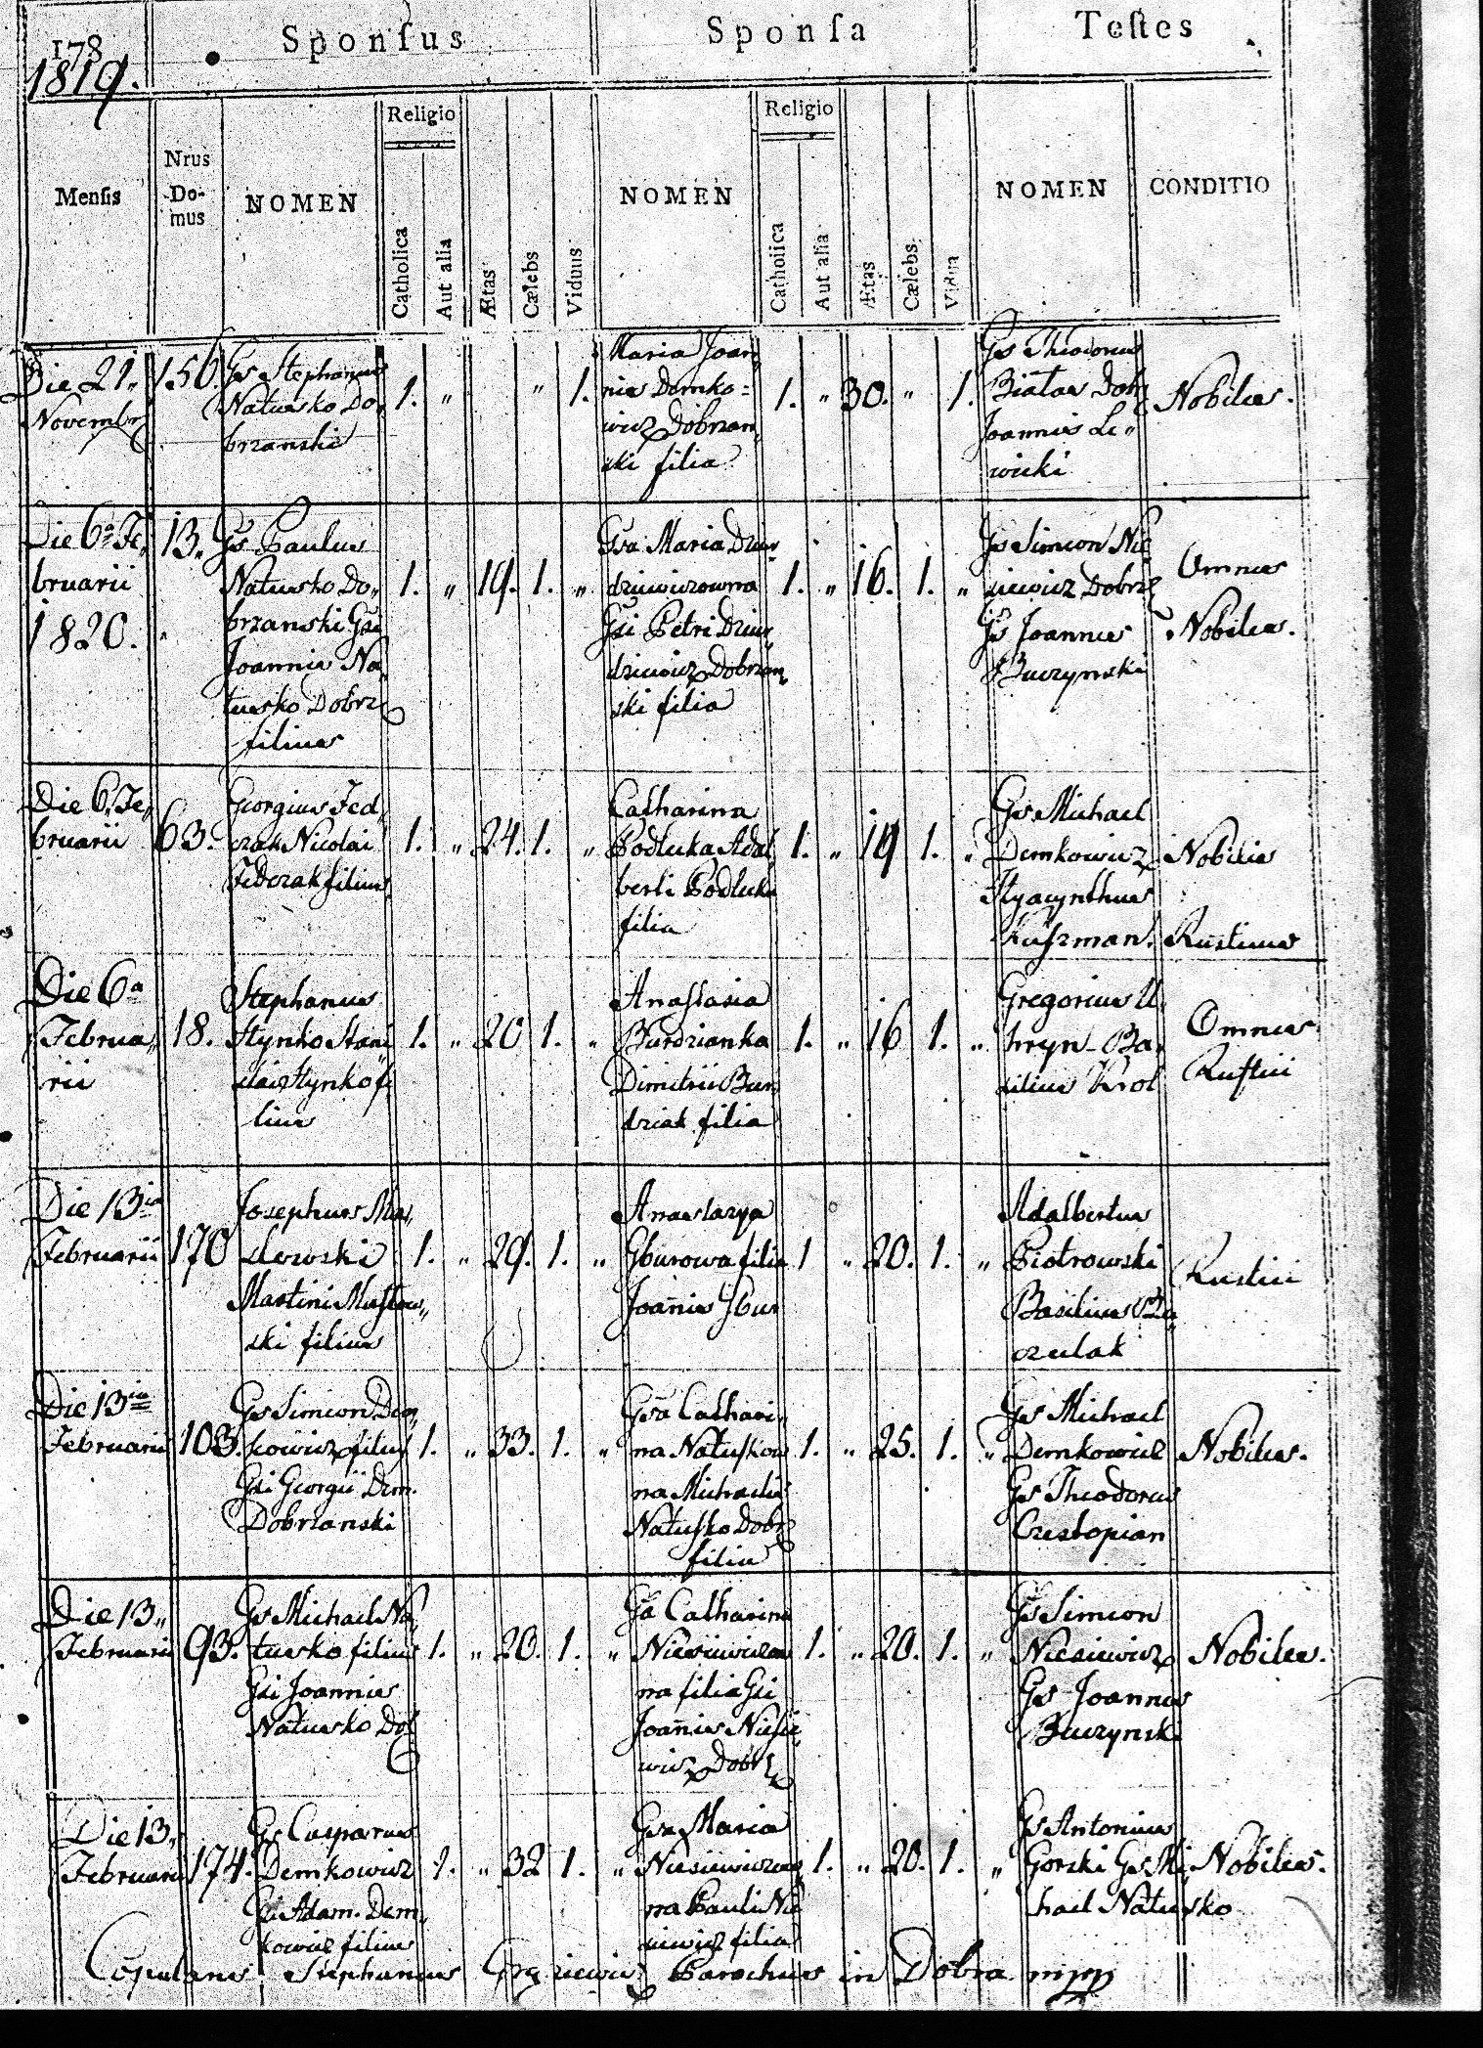 178
1819.
Sponſus
Sponſa
Teſtes
Menſis
Nrus
Do-
mus
NOMEN
Religio
Catholica
Aut alia
Ætas
Cælebs
Viduus
NOMEN
Religio
Catholica
Aut alia
Ætas
Cælebs
Vidua
NOMEN
CONDITIO
Die 21„
Novembr
156.
Gs Stephanus
Natusko Do„
brzanski
1. „ „ 1.
Maria Joan„
nis Demko=
wicz Dobrzan„
ski filia
1. „ 30. „ 1.
Gs Theodorus
Dob
Joannis Le„
wicki
Nobiles.
Die 6a Fe„
bruarii
1820.
13.
Gs Paulus
Natusko Do„
brzanski Gsi
Joannis Na„
tusko Dobrz
filius
1. „ 19. 1. „
Gsa Maria
Gsi Petri
Dobrzan„
ski filia
1. „ 16. 1. „
Gs Simeon Nie
siewicz Dobrz
Gs Joannes
Buczynski
Omnes
Nobiles.
Die 6. Fe„
bruarii
63.
Georgius Fed„
czak Nicolai
Fedczak filius
1. „ 24. 1. „
Catharina
Podluka Adal„
berti Podluka
filia
1. „ 19 1. „
Gs Michael
Demkowicz
Hyacynthus
Nobilis
Rusticus
Die 6a
Februa„
rii
18.
Stephanus
Hynko Stani
slai Hynko fi
lius
1. „ 20 1. „
Anastasia
Burdzianka
Dimitrii Bur„
dziak filia
1. „ 16 1. „
Gregorius U„
hryn Ba„
silius Krol
Omnes
Rustici
Die 13ia
Februarii
170
Josephus Mas„
lowski
Martini Maslow„
ski filius
1. „ 29. 1. „
Anastazya
Gburowa filia
Joannis Gbur
1 „ 20. 1. „
Adalbertus
Piotrowski
Basilius
czulak
Rustici
Die 13ia
Februarii
103.
Gs Simeon Dem„
kowicz filius
Gsi Georgii Dem.
Dobrzanski
1. „ 33. 1. „
Gsa Cathari„
na Natuskow
na Michaelis
Natusko Dobrz
filia
1. „ 25. 1. „
Gs Michael
Demkowicz
Gs Theodorus
Crestopian
Nobiles.
Die 13„
Februarii
93.
Gs Michael Na„
tusko filius
Gsi Joannis
Natusko Dob
1. „ 20. 1. „
Gsa Catharina
Niesiewiczow
na filia Gsi
Joannis Niesie„
wicz Dobrz
1. „ 20. 1. „
Gs Simeon
Niesiewicz
Gs Joannes
Buczynski
Nobiles.
Die 13„
Februarii
174.
Gs Casparus
Demkowicz
Gsi Adam. Dem„
kowicz filius
1. „ 32 1. „
Gsa Maria
Niesiewiczow„
na Pauli Nie
siewicz filia
1. „ 20. 1. „
Gs Antonius
Gorski Gs Mi„
chael Natusko
Nobiles.
Copulans Stephanus Parochus in Dobra mpp